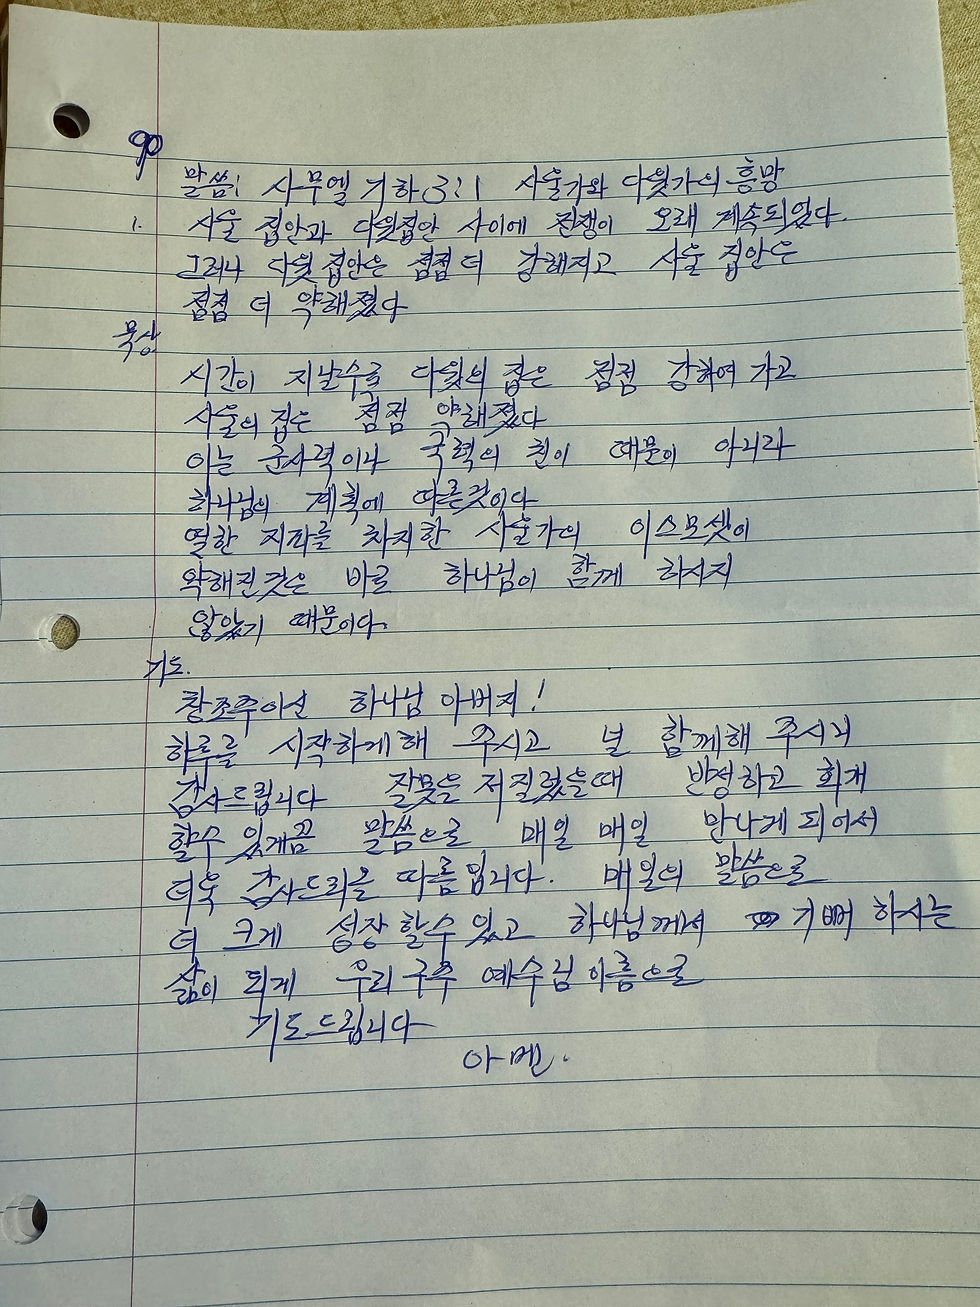 90
말씀: 사무엘 기하 3:1 사울가와 다윗가의 흥망
1. 사울 집안과 다윗집안 사이에 전쟁이 오래 계속되었다.
그러나 다윗 집안은 점점 더 강해지고 사울 집안은
점점 더 약해졌다
묵상
시간이 지날수록 다윗의 집은 점점 강하여 가고
사울의 집은 점점 약해졌다
이는 군사력이나 국력의 힘이 때문이 아니라
하나님의 계획에 따른것이다
열한 지파를 차지한 사울가의 이스보셋이
약해진것은 바로 하나님이 함께 하시지
않았기 때문이다.
기도.
창조주이신 하나님 아버지!
하루를 시작하게해 주시고 널 함께해 주시니
감사드립니다 잘못을 저질렀을때 반성하고 회개
할수 있게끔 말씀으로 매일 매일 만나게 되어서
더욱 감사드리울 따름입니다. 매일의 말씀으로
더 크게 성장할수 있고 하나님께서 기뻐 하시는
삶이 되게 우리 구주 예수님 이름으로
기도드립니다
아멘.